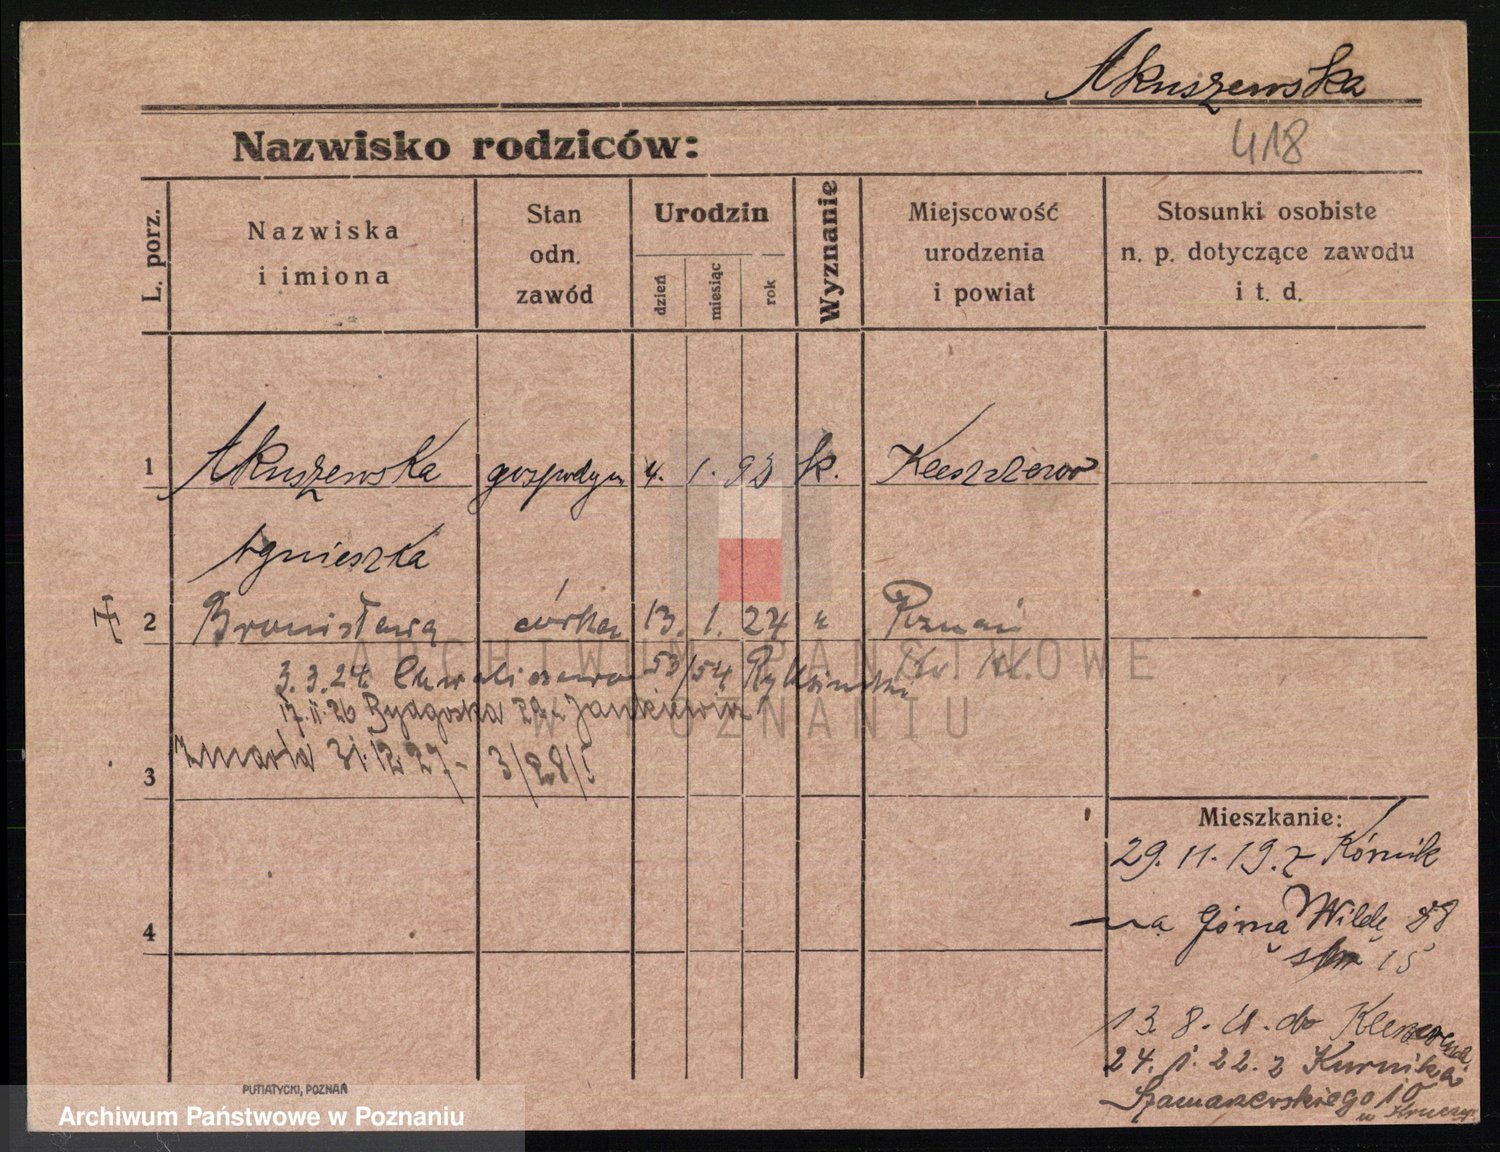 Akuszewska
418
Nazwisko rodziców:
L. porz.
Nazwiska
i imiona
Stan
odn.
zawód
Urodzin
dzień
miesiąc
rok
Wyznanie
Miejscowość
urodzenia
i powiat
Stosunki osobiste
n. p. dotyczące zawodu
i t. d.
1 Akuszewska gospodyn 4. 1. 93 k. Kleszczewo
Agnieszka
2 Bronisława córka 13. 1. 24 " Poznań
3.3.24. Chwaliszewo 53/54
17.11.26 Bydgoska Jankiewicz
zmarła 31.12.27 - 3/28/
3
4
Mieszkanie:
29. 11. 19. z Kórnik
na Górną Wildę 88
15
13. 8. 21. do
24. 1. 22. z Kurnika
Szamarzewskiego 10
PUTIATYCKI, POZNAŃ
ARCHIWUM PAŃSTWOWE
W POZNANIU
Archiwum Państwowe w Poznaniu